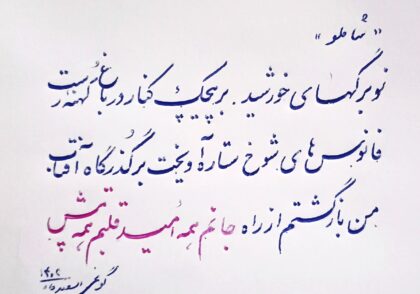 "شاملو"
نوبرگهای خورشید. بر پیچک کنار در باغ کهنه رست
فانوس‌های شوخ ستاره آویخت بر گذرگاه آفتاب
من بازگشتم از راه جانم همه امید قلبم همه تپش
۱۴۰۲